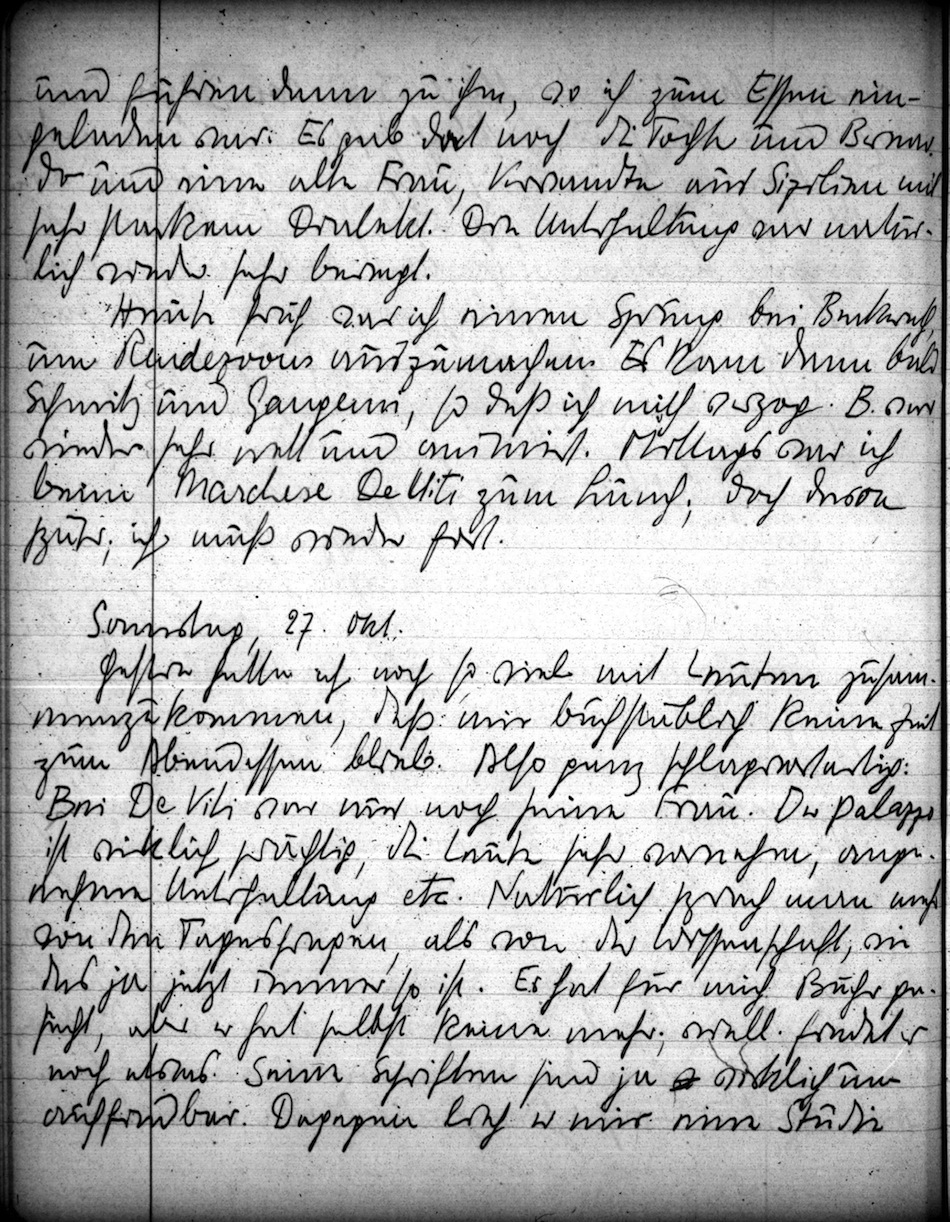 und fuhren dann zu ihm, wo ich zum Essen ein-
geladen war. Es gab dort noch die Tochter und Bernar-
do und eine alte Frau, Verwandte aus Sizilien mit
sehr starkem Dialekt. Die Unterhaltung war natür-
lich wieder sehr bewegt.
Heute früh war ich einen Sprung bei
um Rendezvous auszumachen. Es kam dann bald
Schmitz und Gangemi, so daß ich mich verzog. B. war
wieder sehr nett und animiert. Mittags war ich
beim Marchese De Viti zum Lunch, doch davon
später, ich muß wieder fort.
Samstag, 27. Okt.
Gestern hatte ich noch so viel mit Leuten zusam-
menzukommen, daß mir buchstäblich keine Zeit
zum Abendessen blieb. Also ganz schlagwortartig:
Bei De Viti war nur noch seine Frau. Der Palazzo
ist wirklich prächtig, die Leute sehr vornehm, ange-
nehme Unterhaltung etc. Natürlich sprach man mehr
von den Tagesfragen, als von der Wissenschaft, wie
das ja jetzt immer so ist. Er hat für mich Bücher ge-
sucht, aber er hat selbst keine mehr; evtl. findet er
noch etwas. Seine Schriften sind ja wirklich un-
auffindbar. Dagegen lieh er mir eine Studie